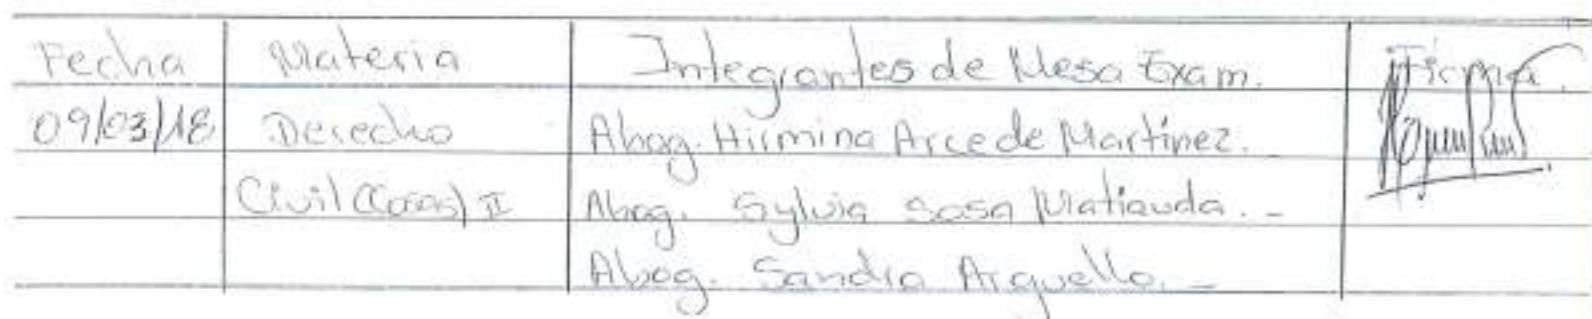 Fecha Materia Integrantes de Mesa Exam. Firma.
09/03/18 Derecho Abog. Hirmina Arce de Martínez.
Civil (Cosas) II Abog. Sylvia Sosa Matiauda. -
Abog. Sandra Arguello. -